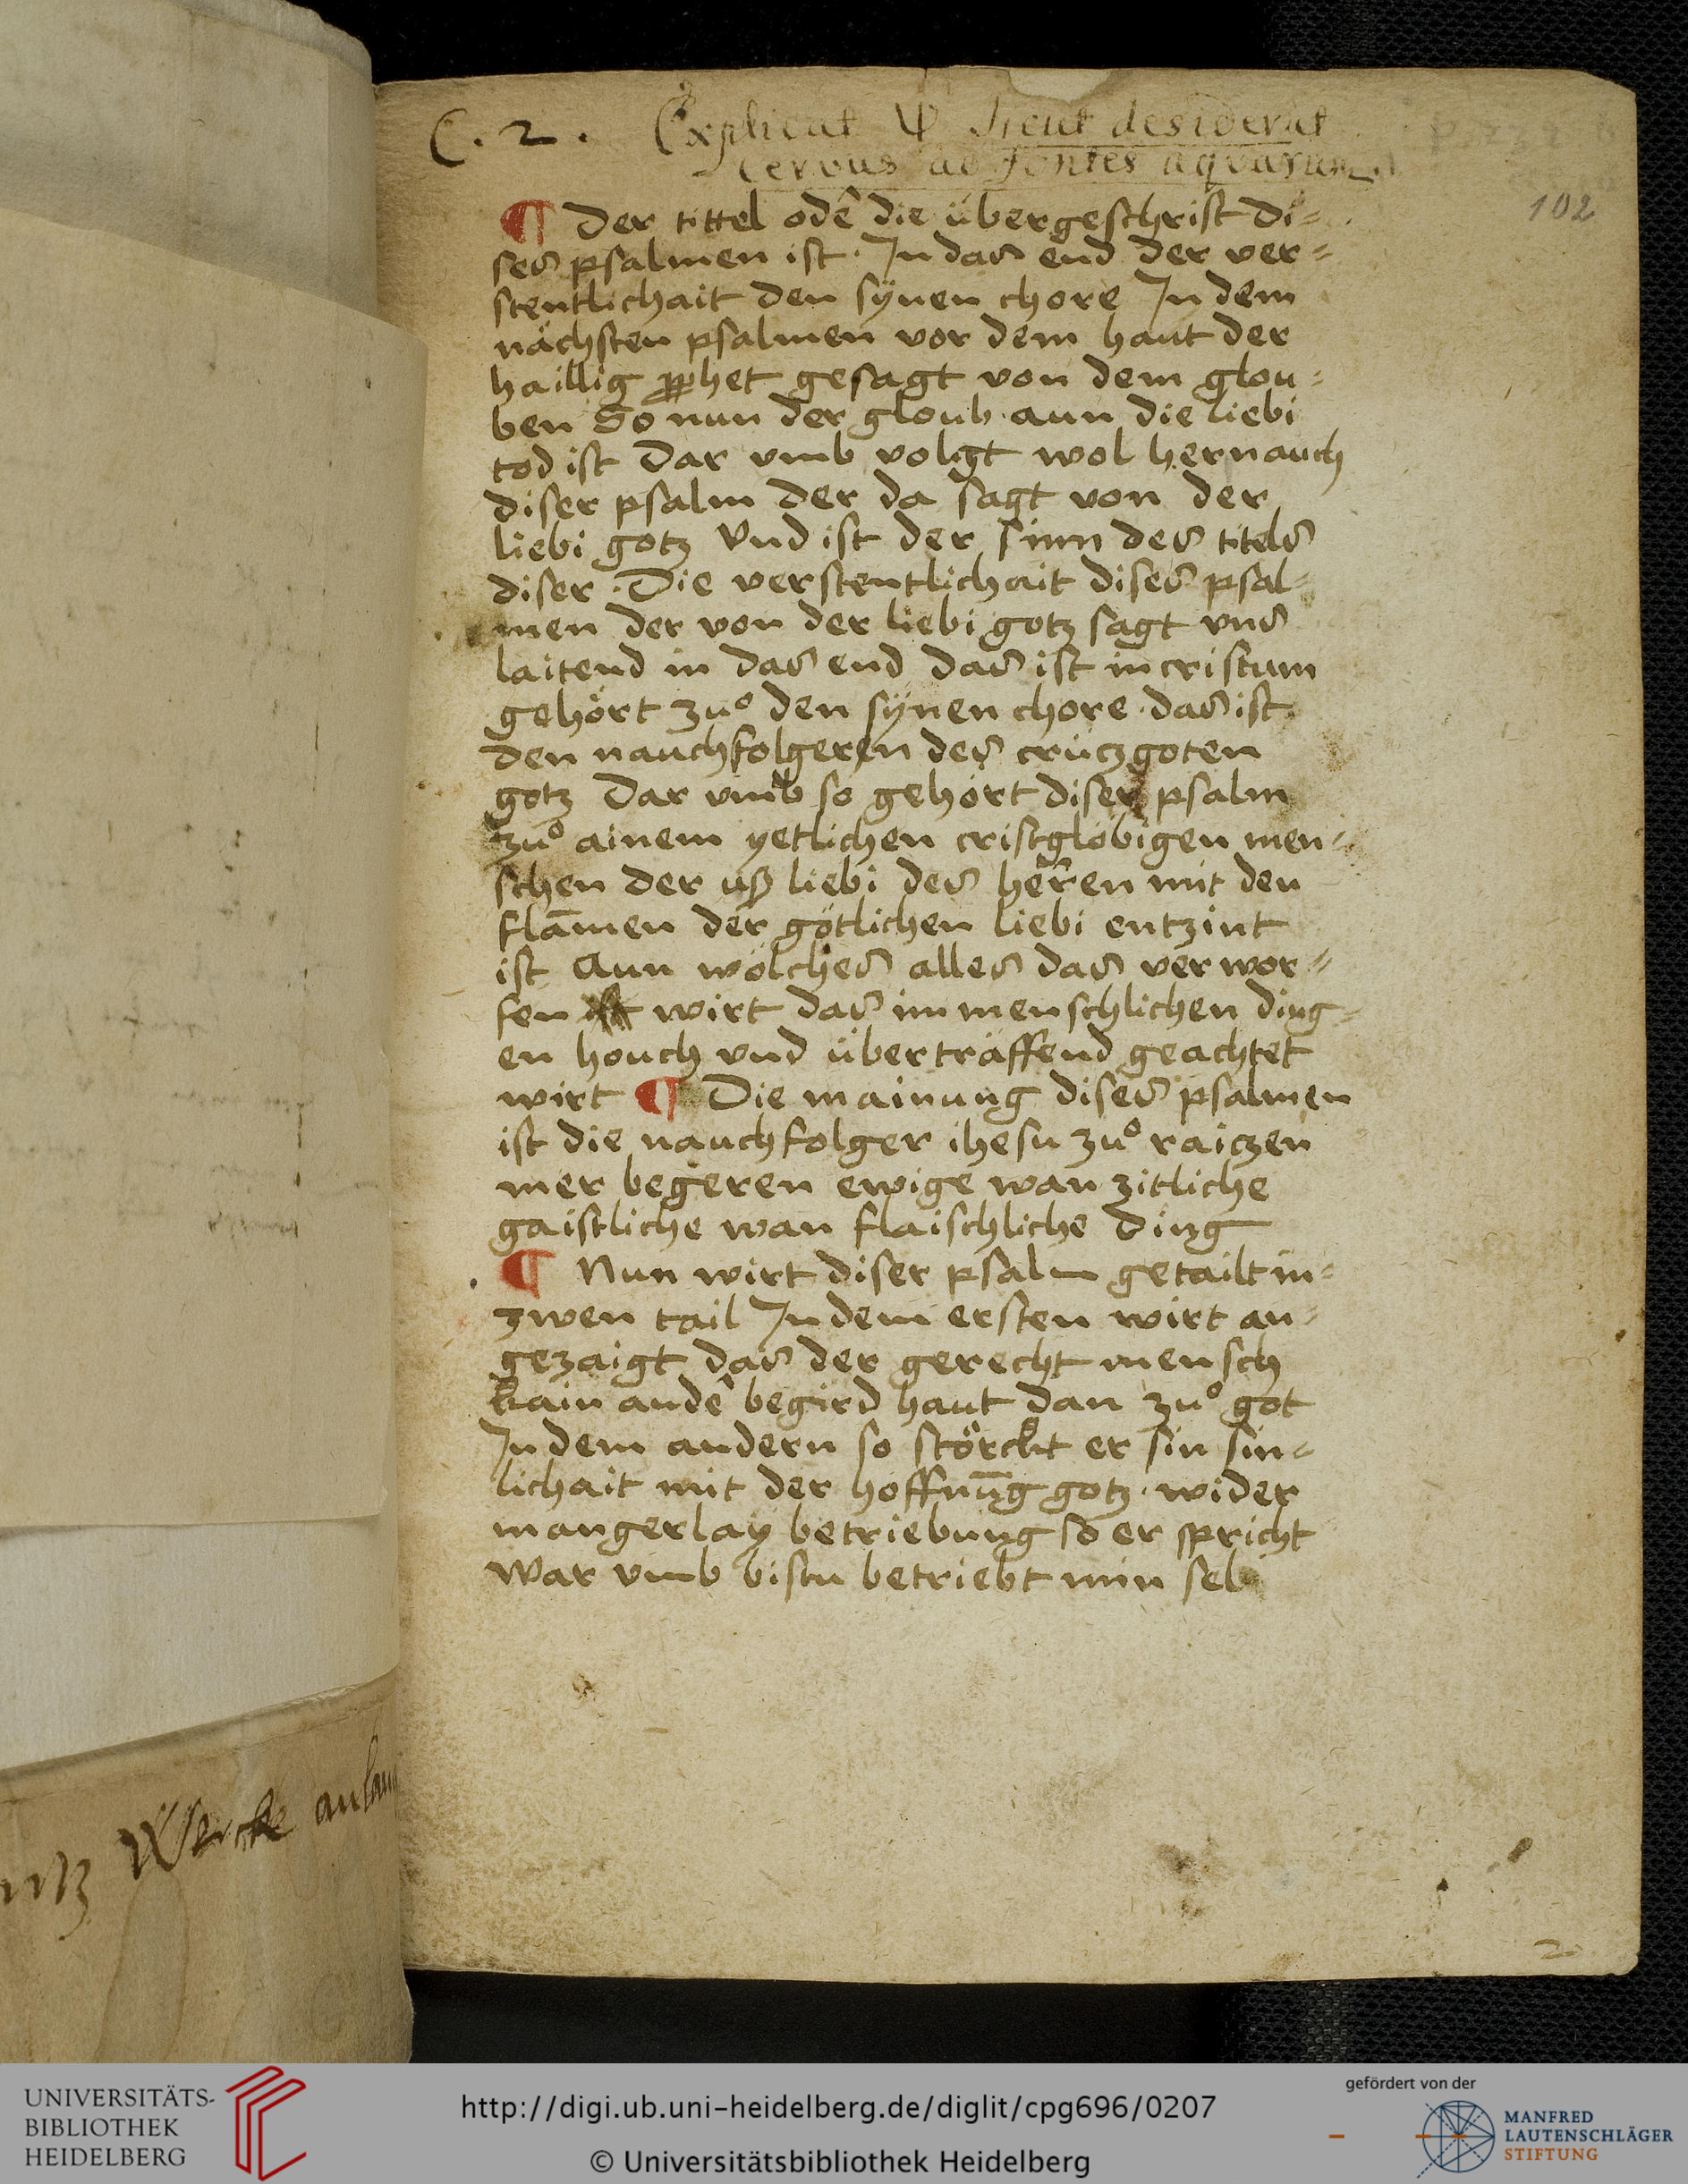 C. 2. Explicat Ψ Sicut desiderat
Cervus ad fontes aquarum
102
¶ Der tittel odẽ die übergeschrift di=
ses psalmen ist · In das end der ver=
stentlichait den sÿnen chore In dem
nächsten psalmen vor dem haut der
haillig ꝓphet gesagt von dem glou=
ben So nun der gloub aun die liebi
tod ist Dar vmb volgt wol hernauch
diser psalm der da sagt von der
liebi gotz Vnd ist der sinn des titels
diser · Die verstentlichait dises psal=
men der von der liebi gotz sagt vns
laitend in das end das ist in cristum
gehört zuͦ den sÿnen chore · das ist
den nauchfolgeren des crützgoten
gotz Dar vmb so gehört diser psalm
zuͦ ainem yetlichen cristglöbigen men=
schen der uß liebi des herren mit den
flam̄en der götlichen liebi entzint
ist Aun wölches alles das verwor=
fen wirt das im menschlichen ding=
en houch vnd überträffend geachtet
wirt ¶ Die mainung dises psalmen
ist die nauchfolger ihesu zuͦ raitzen
mer begeren ewige wan zitliche
gaistliche wan flaischliche ding
¶ Nun wirt diser psalm getailt in=
zwen tail In dem ersten wirt an=
gezaigt das der gerecht mensch
kain andẽ begird haut dan zuͦ got
In dem andern so störckt er sin sin=
lichait mit der hoffnūg gotz · wider
mangerlay betriebung so er spricht
War vmb bistu betriebt min sel
Wercke anlang
2
UNIVERSITÄTS-
BIBLIOTHEK
HEIDELBERG
http://digi.ub.uni-heidelberg.de/diglit/cpg696/0207
© Universitätsbibliothek Heidelberg
gefördert von der
MANFRED
LAUTENSCHLÄGER
STIFTUNG